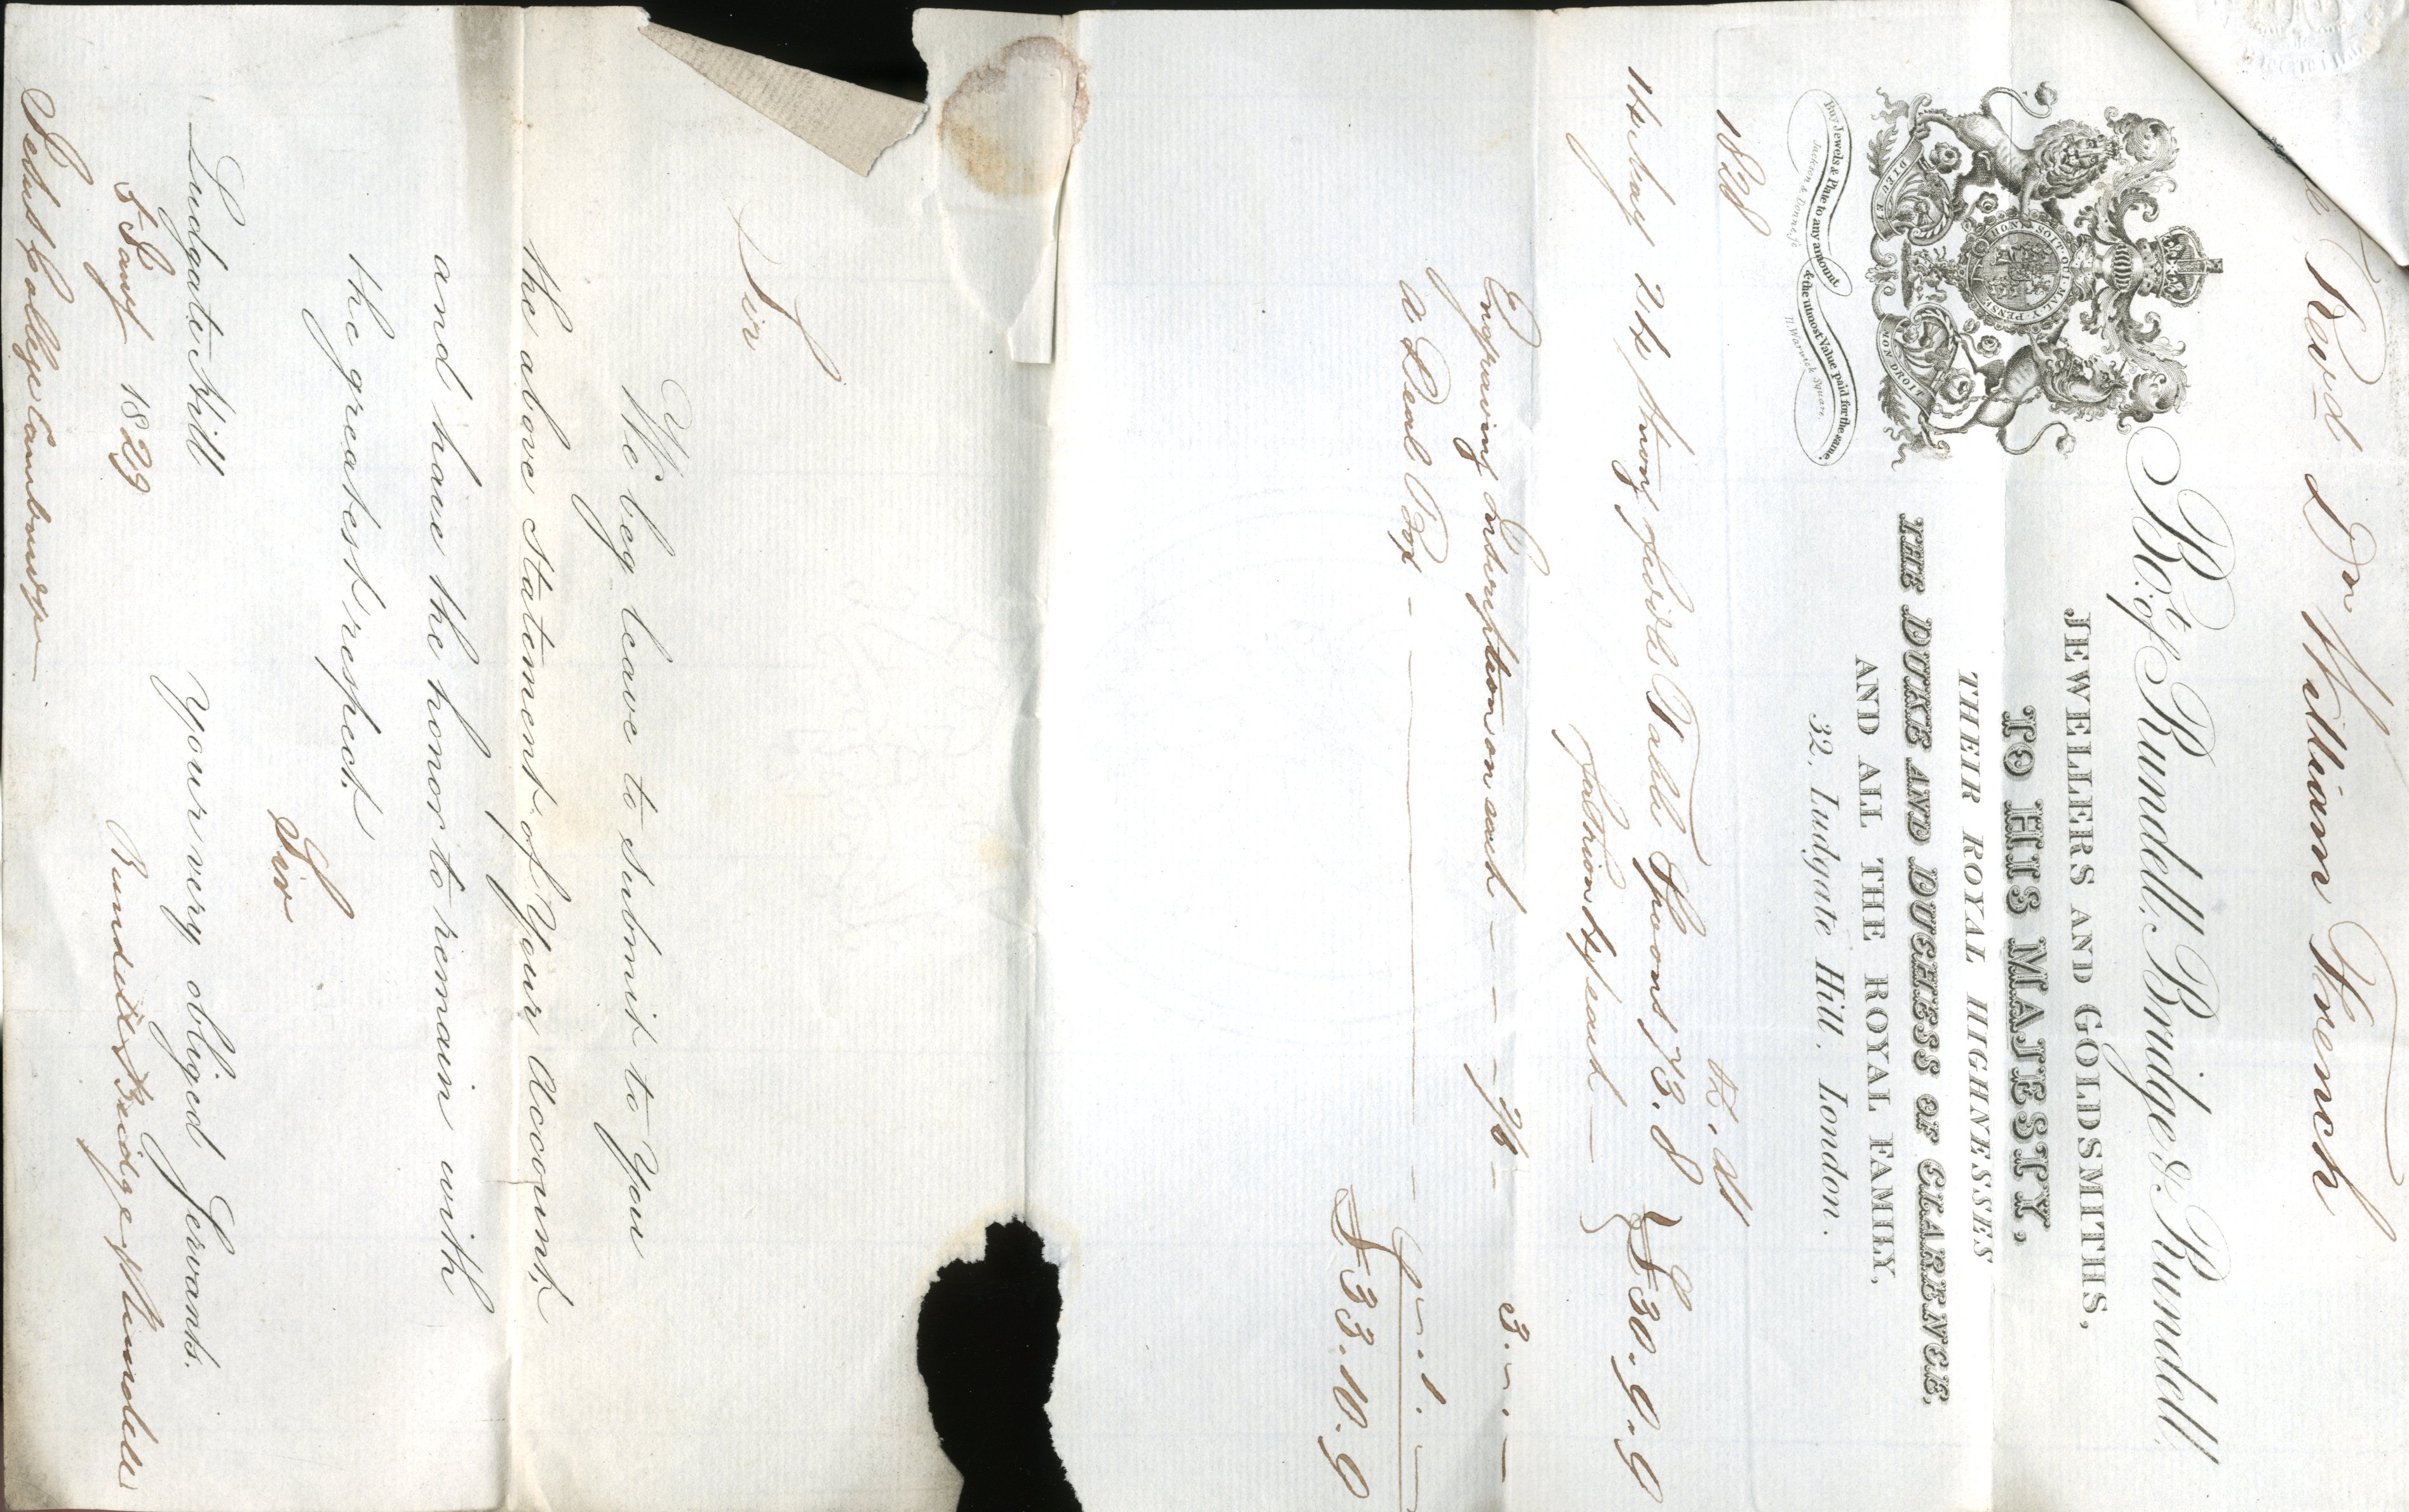 Revd Dr William French
Bot. of Rundell, Bridge & Rundell.
JEWELLERS AND GOLDSMITHS,
TO HIS MAJESTY,
THEIR ROYAL HIGHNESSES
THE DUKE AND DUCHESS OF CLARENCE,
AND ALL THE ROYAL FAMILY,
32, Ludgate Hill, London.
HONI·SOIT·QUI·MAL·Y·PENSE
DIEU ET MON DROIT
Buy Jewels & Plate to any amount & the utmost Value paid for the same.
Warwick Square
1828
14 May 24 strong Table Spoons 73.8 £30.9.9
each
Engraving Inscription on each 2/6 3.–.–
a Deal Box –.1.–
£33.10.9
Sir
We beg leave to submit to You
the above statement of Your Account,
and have the honor to remain with
the greatest respect.
Sir
Ludgate Hill Your very obliged Servants.
1829 Rundell Bridge & Rundell
College Cambridge